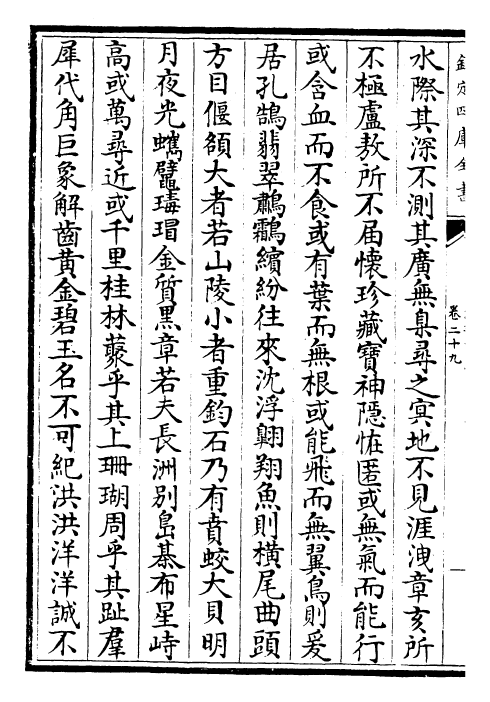 欽定四庫全書
卷二十九
水際其深不測其廣無臬尋之㝠地不見涯洩章亥所
不極盧敖所不届懐珍藏寳神隠恠匿或無氣而能行
或含血而不食或有葉而無根或能飛而無翼鳥則爰
居孔鵠翡翠鷫鸘繽紛往來沈浮翺翔魚則橫尾曲頭
方目偃頟大者若山陵小者重鈞石乃有賁蛟大貝明
月夜光蠵鼊瑇瑁金質黒章若夫長洲别島棊布星峙
高或萬尋近或千里桂林藂乎其上珊瑚周乎其趾羣
犀代角巨象解齒黄金碧玉名不可紀洪洪洋洋誠不